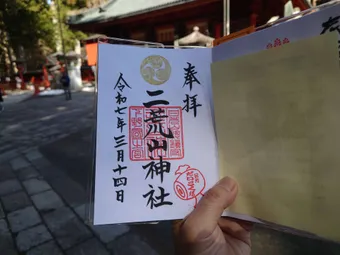 奉拝
二荒山神社
令和七年三月十四日